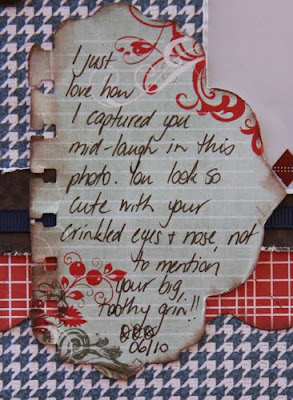 I just
love how
I captured you
mid-laugh in this
photo. You look so
cute with your
crinkled eyes + nose, not
to mention
your big,
toothy grin!!
06/10